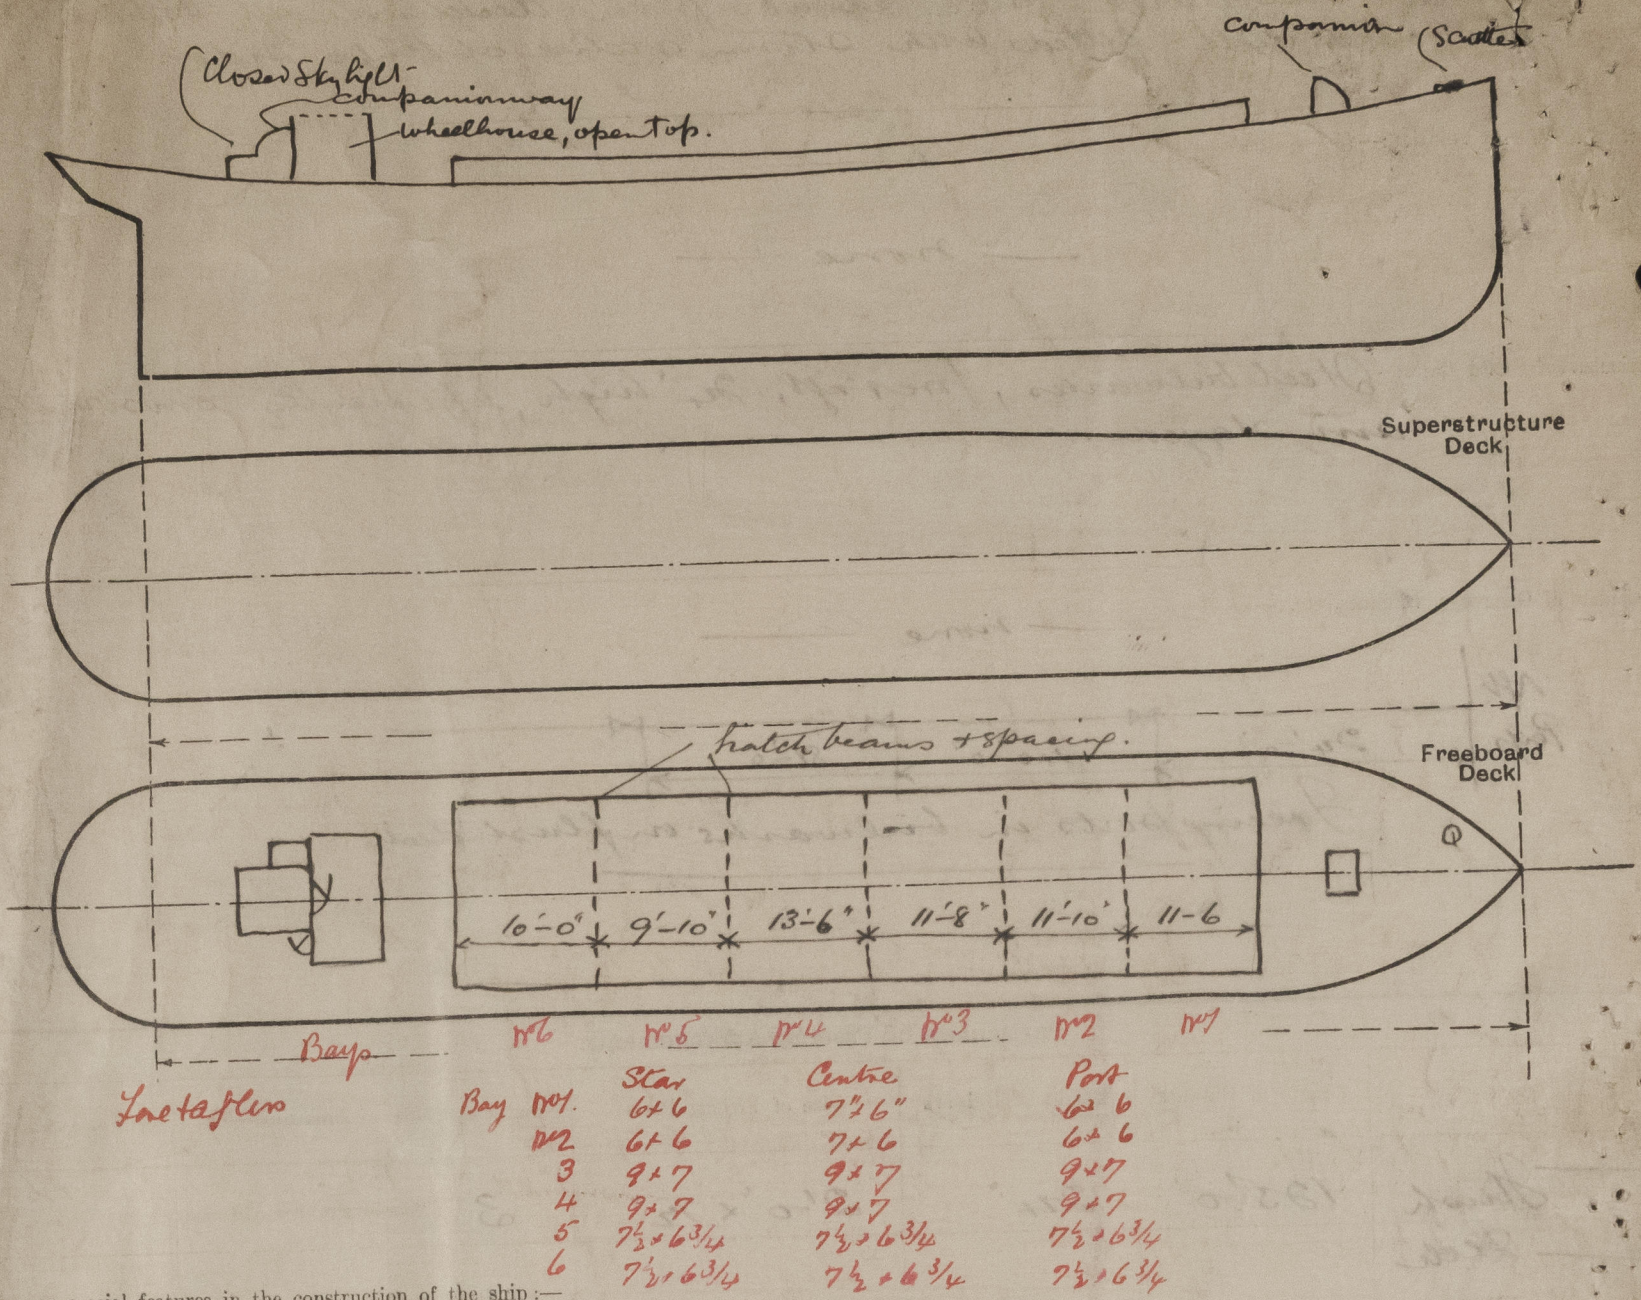 companion
Scuttle
Closed Skylight
companionway
wheelhouse, open top.
Superstructure
Deck
hatch beams + spacing.
Freeboard
Deck
10'-0" 9'-10" 13'-6" 11'-8" 11'-10" 11-6
Nº6 Nº5 Nº4 Nº3 Nº2 Nº1
Bays
Star Centre Port
Fore & afters Bay Nº1. 6x6 7"x6" 6x6
Nº2 6x6 7x6 6x6
3 9x7 9x7 9x7
4 9x7 9x7 9x7
5 7½x6¾ 7½x6¾ 7½x6¾
6 7½x6¾ 7½x6¾ 7½x6¾
features in the construction of the ship:—